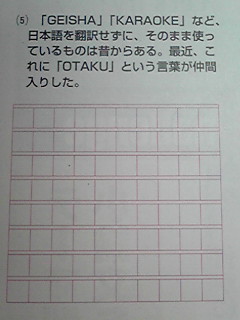 ⑤ 「GEISHA」「KARAOKE」など、
日本語を翻訳せずに、そのまま使っ
ているものは昔からある。最近、こ
れに「OTAKU」という言葉が仲間
入りした。